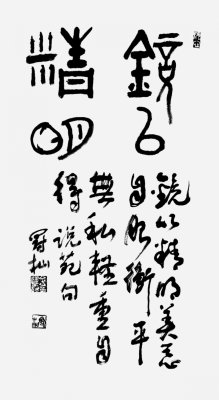 鏡以
精明
鏡以精明美惡
自服衡平
無私輕重自
得说苑句